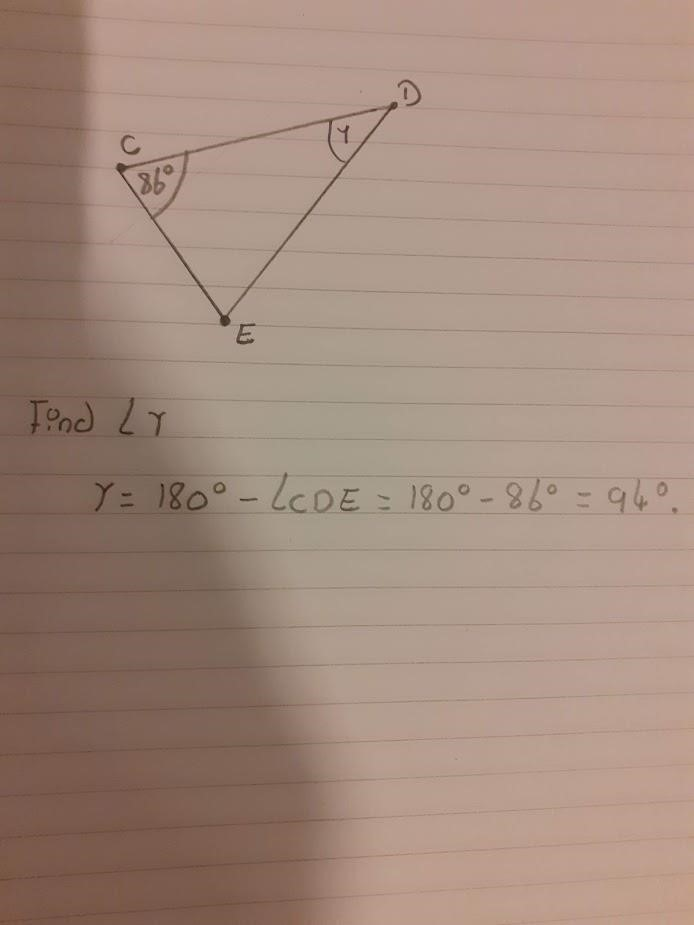 D
C
Y
86°
E
Find ∠Y
Y = 180° - ∠CDE = 180° - 86° = 94°.